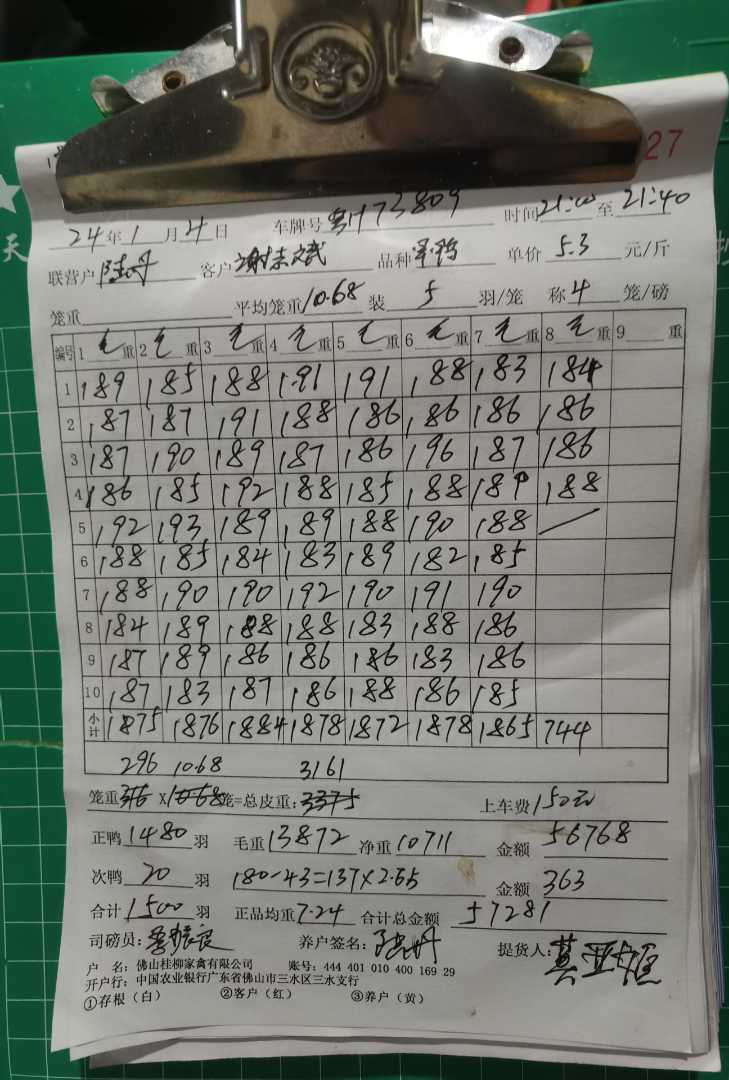 27
24年1月4日 车牌号 73809 时间21:00至21:40
联营户 陆丹 客户 谢志斌 品种 单价 5.3 元/斤
笼重 平均笼重10.68 装 5 羽/笼 称4笼/磅
编号 1 毛重 2 毛重 3 毛重 4 毛重 5 毛重 6 毛重 7 毛重 8 毛重 9 重
1 189 185 188 191 191 188 183 184
2 187 187 191 188 186 186 186 186
3 187 190 189 187 186 196 187 186
4 186 185 192 188 185 188 189 188
5 192 193 189 189 188 190 188
6 188 185 184 183 189 182 185
7 188 190 190 192 190 191 190
8 184 189 188 188 183 188 186
9 187 189 186 186 186 183 186
10 187 183 187 186 188 186 185
小计 1875 1876 1884 1878 1872 1878 1865 744
296 10.68 3161
笼重 X 笼=总皮重: 上车费150元
正鸭1480羽 毛重13872 净重10711 金额 56768
次鸭 20 羽 180-43=137×2.65 金额 363
合计1500羽 正品均重7.24 合计总金额 57281
司磅员: 养户签名: 提货人:
户 名: 佛山桂柳家禽有限公司 账号: 444 401 010 400 169 29
开户行: 中国农业银行广东省佛山市三水区三水支行
①存根（白） ②客户（红） ③养户（黄）